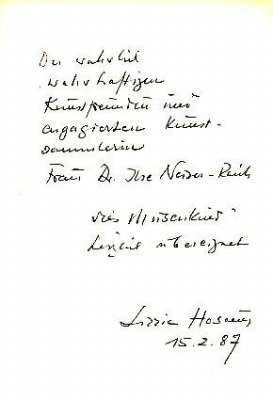 Der wahrlich
wahrhaftigen
Kunstfreundin und
engagierten Kunst-
sammlerin
Frau Dr. Ilse
dies Musenkind
übereignet
Lizzie Hosaeus
15.2.87